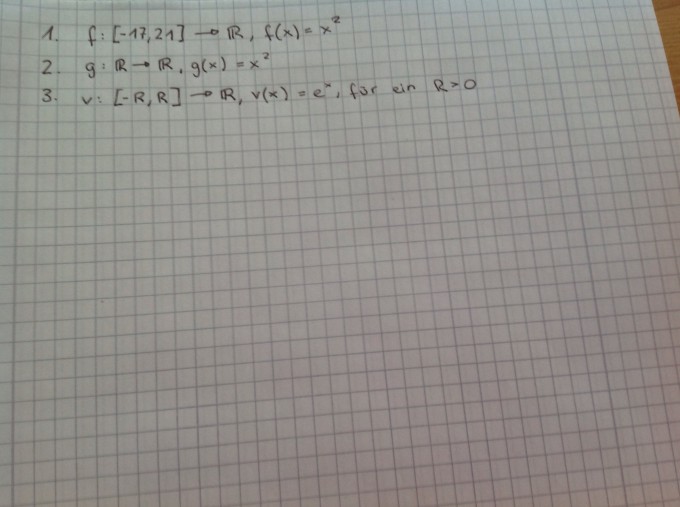 1. f: [-17,21] → ℝ, f(x) = x²
2. g: ℝ → ℝ, g(x) = x²
3. v: [-R, R] → ℝ, v(x) = eˣ, für ein R>0